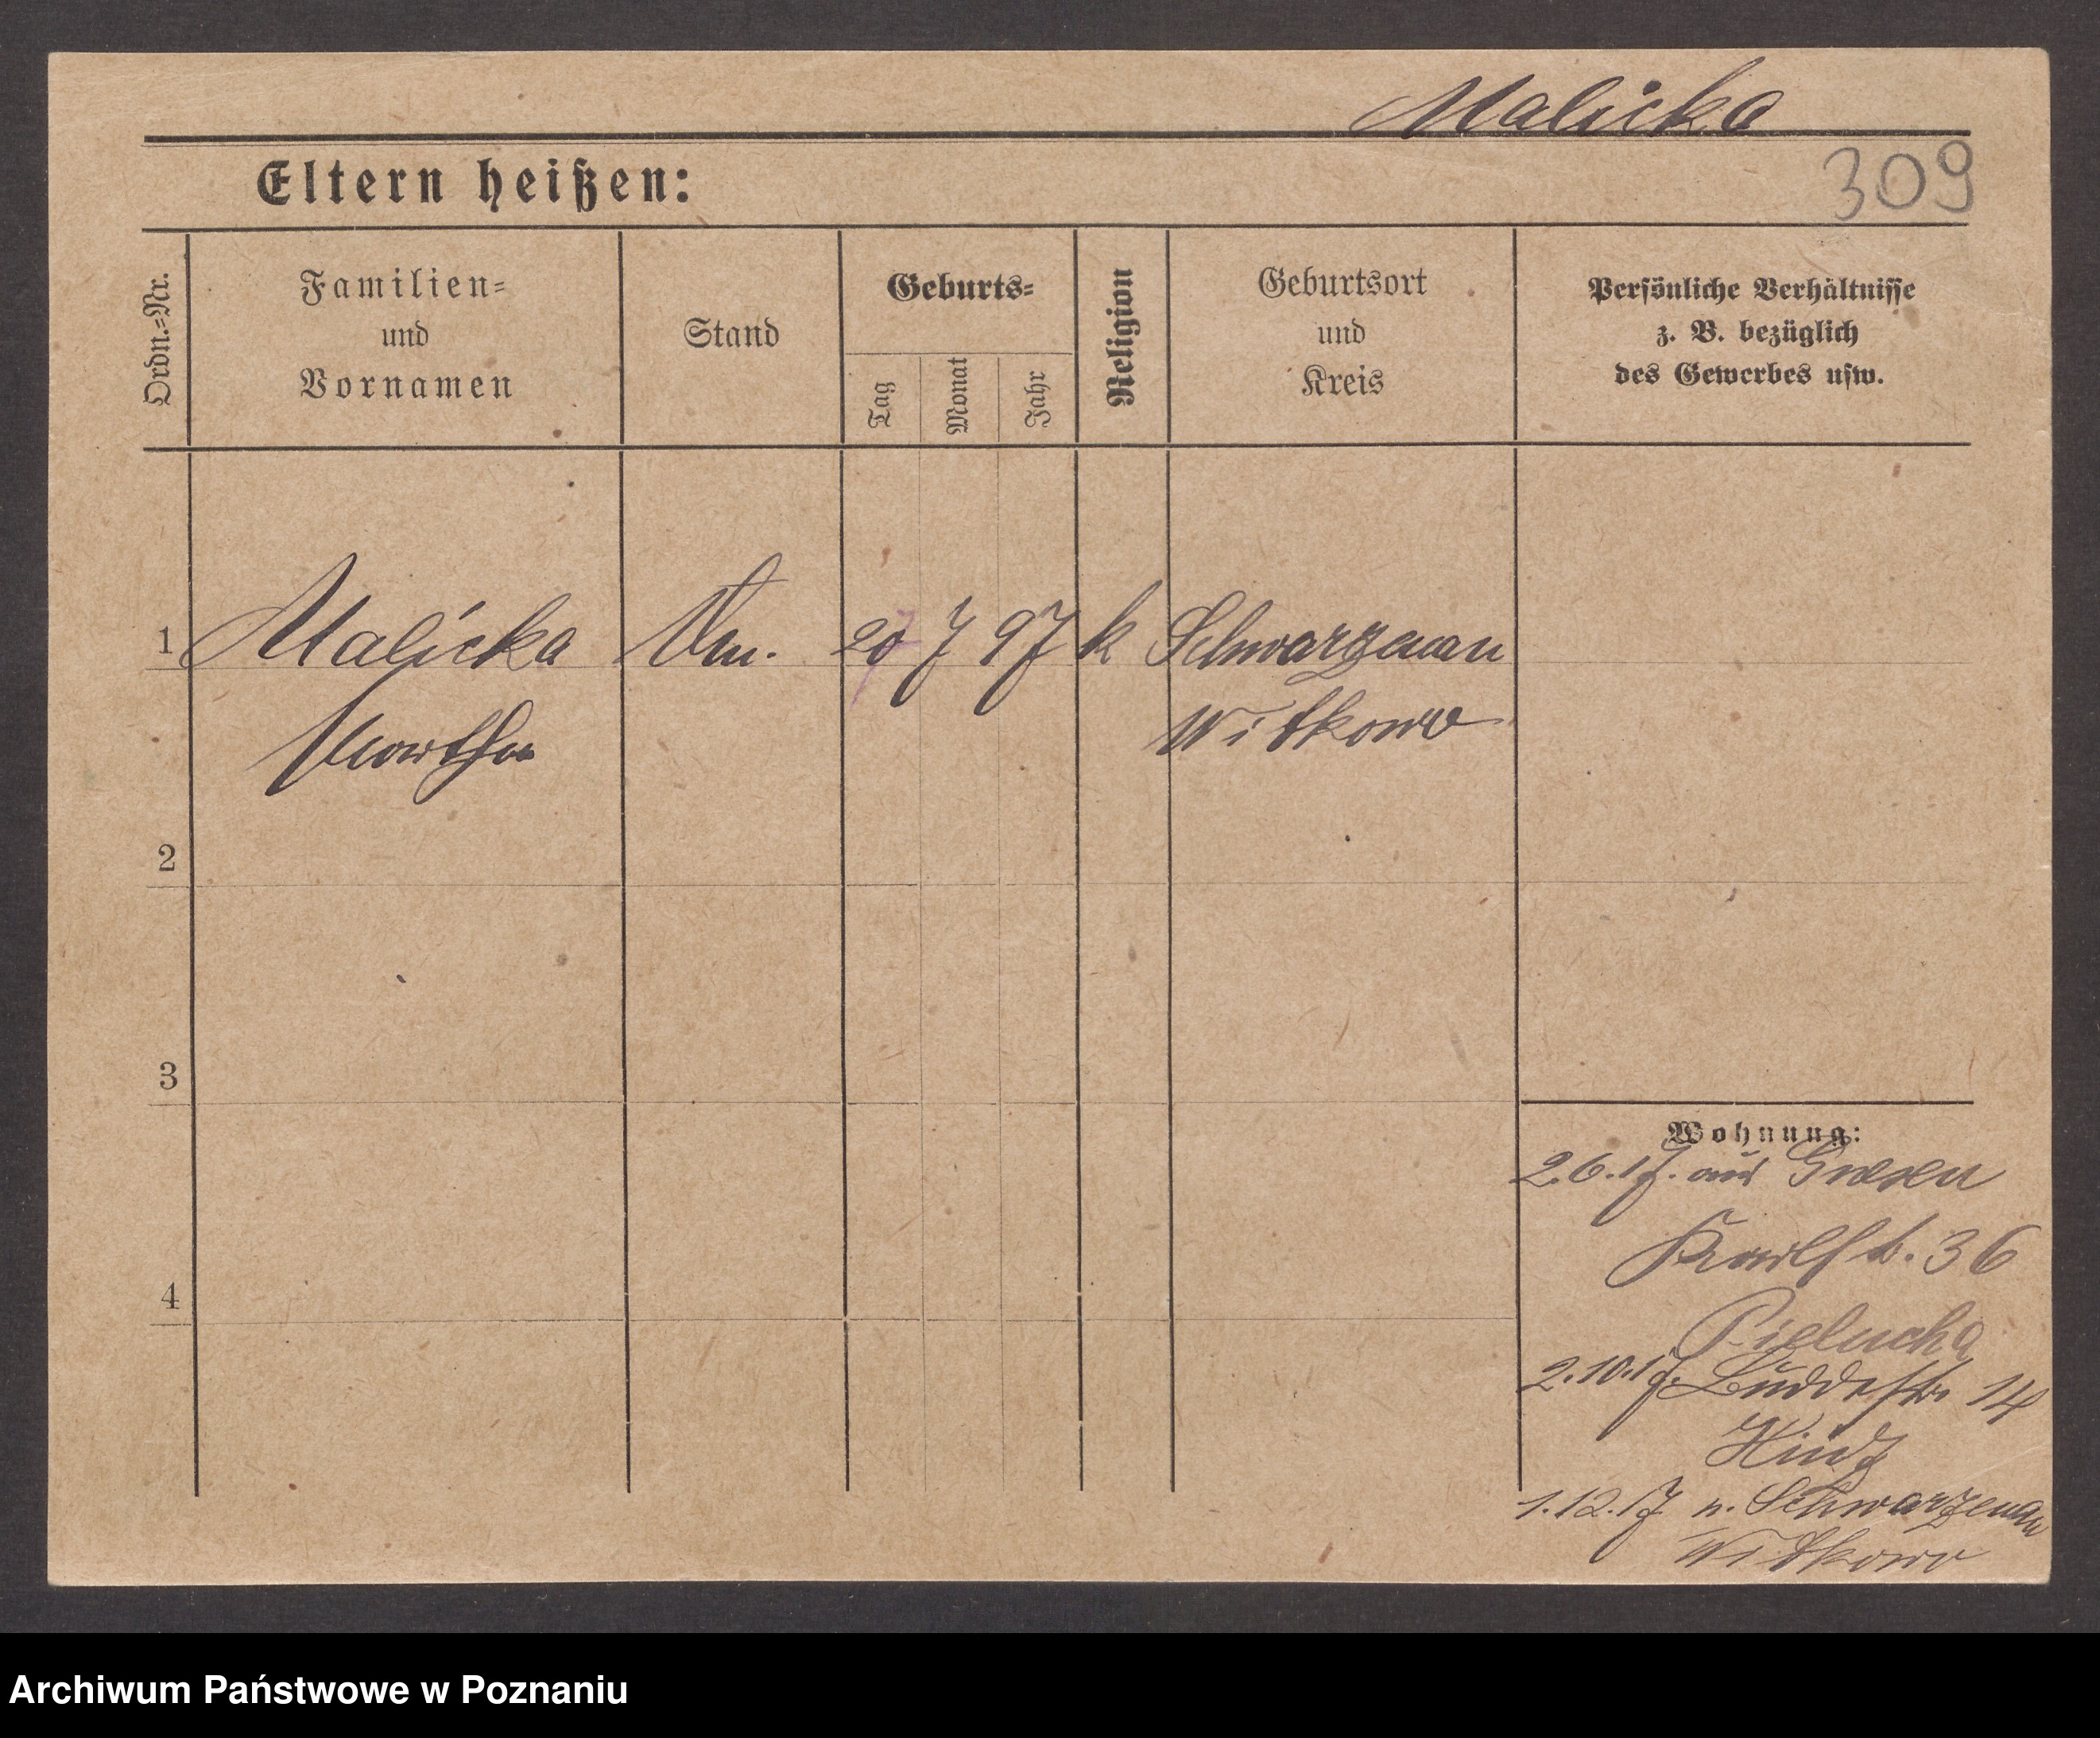 Malicka
Eltern heißen:
309
Ordn.-Nr.
Familien-
und
Vornamen
Stand
Geburts-
Tag
Monat
Jahr
Religion
Geburtsort
und
Kreis
Persönliche Verhältnisse
z. B. bezüglich
des Gewerbes usw.
1 Malicka 7 97 k Schwarzenau
Martha Witkowo
2
3
4
Wohnung:
2.6.17. aus Gnesen
Karlstr. 36
Pielucha
2.10.17. Buddestr. 14
Hinz
1.12.17 n. Schwarzenau
Witkowo
Archiwum Państwowe w Poznaniu